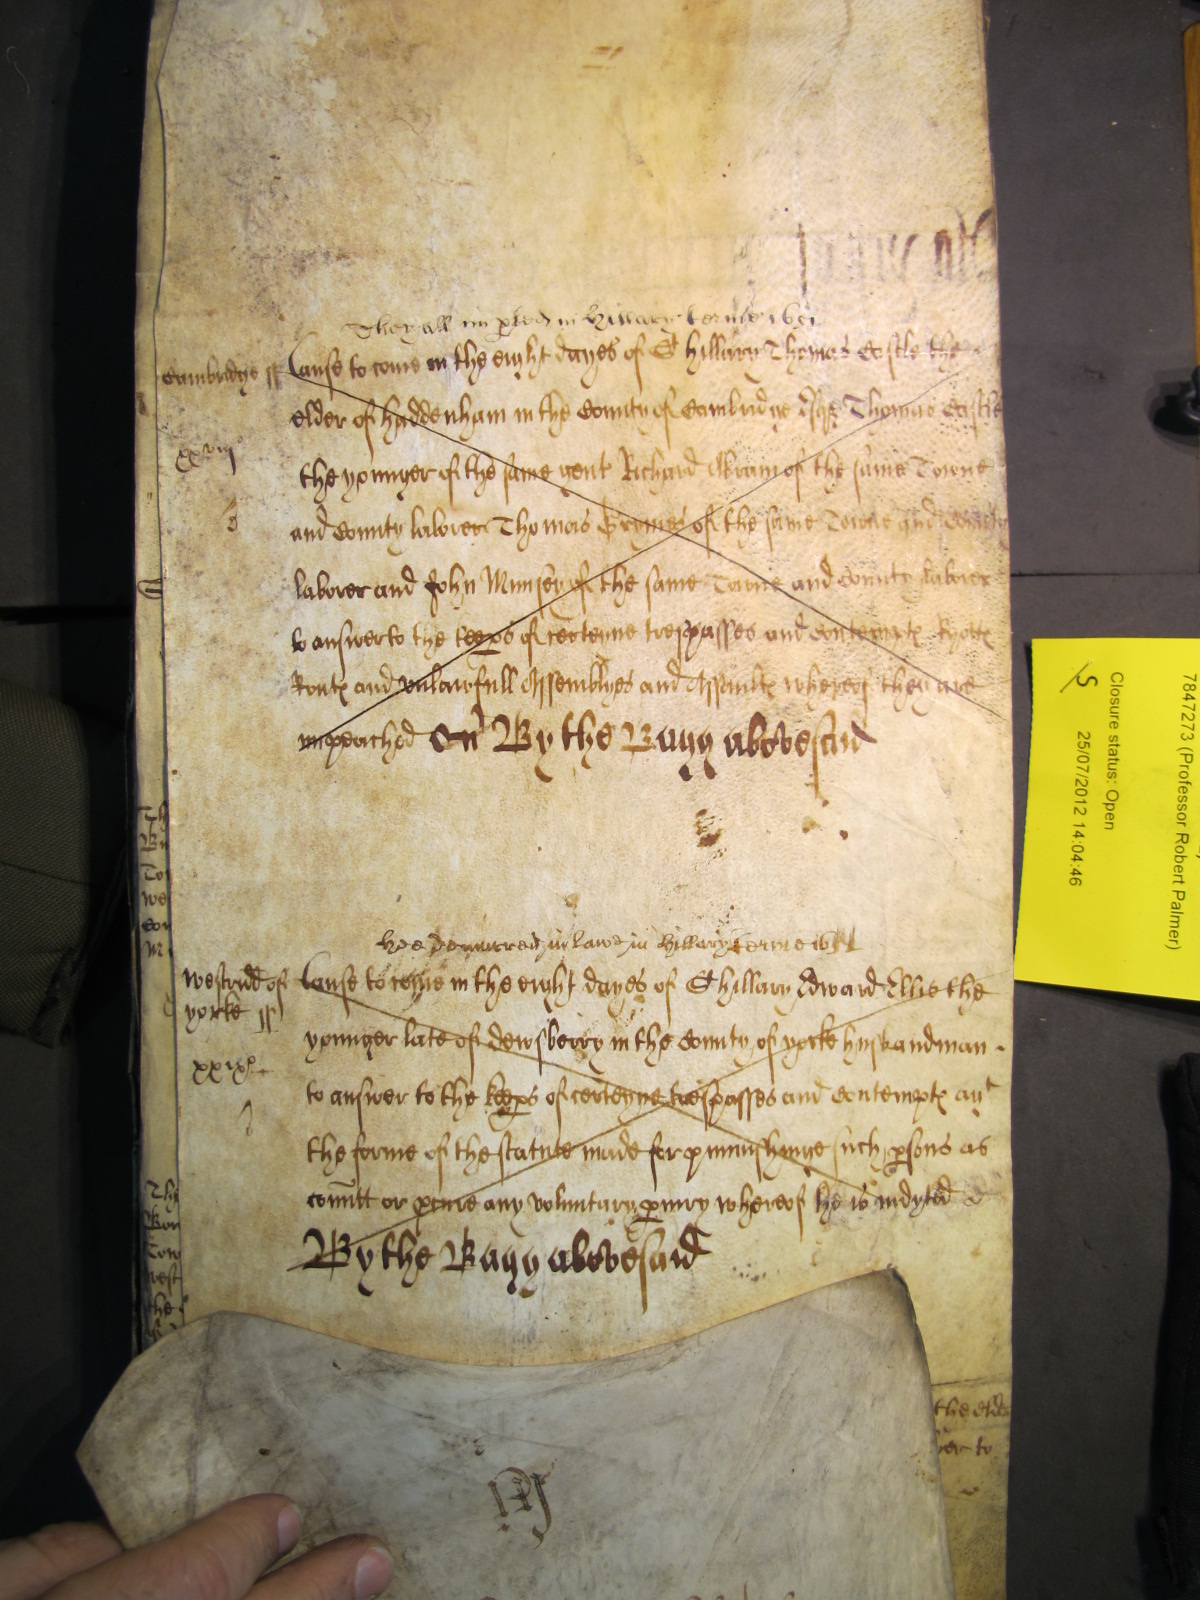 They all im pled in Hillary terme 1651
Cambridge ss Cause to come in the eight dayes of St Hillary Thomas Castle the
elder of Haddenham in the County of Cambridge Thomas Castle
xxviij
the younger of the same gent Richard of the same Towne
and County laborer Thomas Grymes of the same Towne and County
laborer and John Munsey of the same Towne and County laborer
to answer to the keeps of certeyne trespasses and contempts Ryotts
Routs and unlawfull Assemblyes and Assaults whereof they are
impeached By the Bagg abovesaid
Hee demurred in lawe in Hillary terme 1651
westrid of Cause to come in the eight dayes of St Hillary Edward Ellis the
yorke ss
younger late of dewsberry in the County of yorke husbandman
xxix
to answer to the keeps of certeyne trespasses and Contempts
the forme of the statute made for punnishinge such psons as
comitt or pcure any voluntary piury whereof he is indyted
By the Bagg abovesaid
the elder
to
7847273 (Professor Robert Palmer)
Closure status: Open
25/07/2012 14:04:46